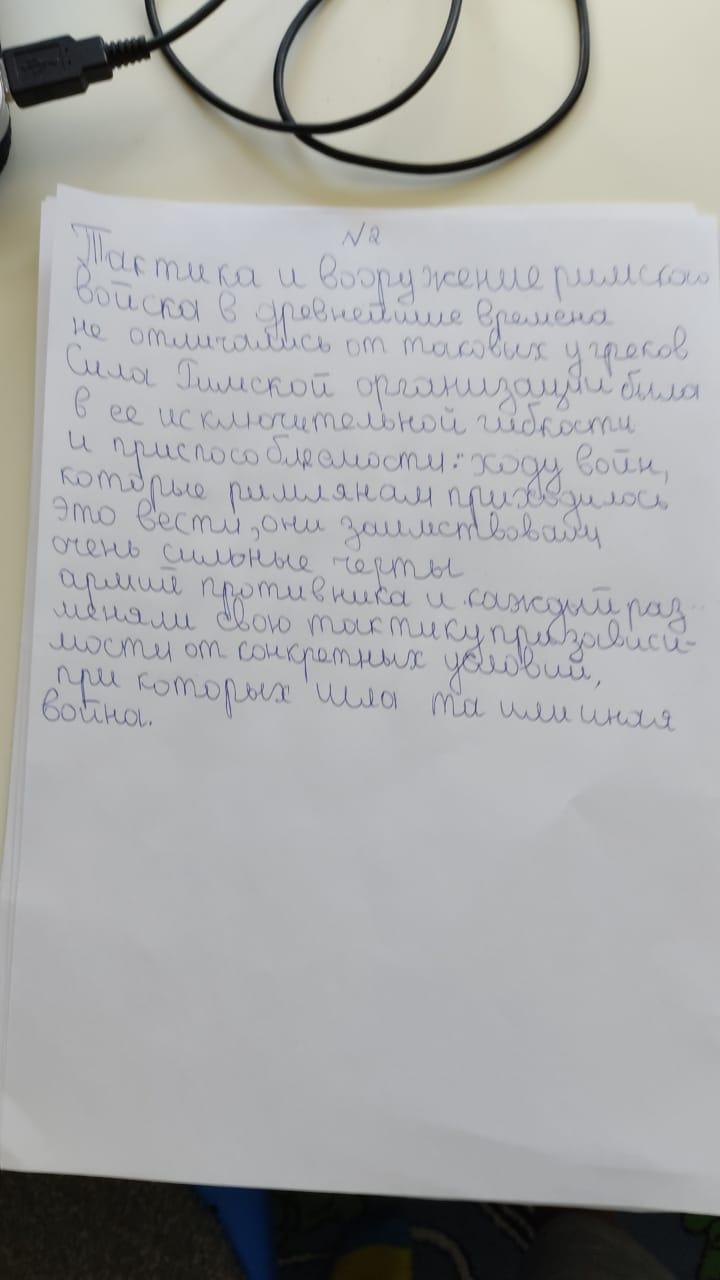 N2
Тактика и вооружение римского
войска в древнейшие времена
не отличались от таковых у греков
Сила Римской организации была
в ее исключительной гибкости
и приспособляемости: ходу войн,
которые римлянам приходилось
это вести, они заимствовали
очень сильные черты
армий противника и каждый раз
меняли свою тактику при зависи-
мости от конкретных условий,
при которых шла та или иная
война.